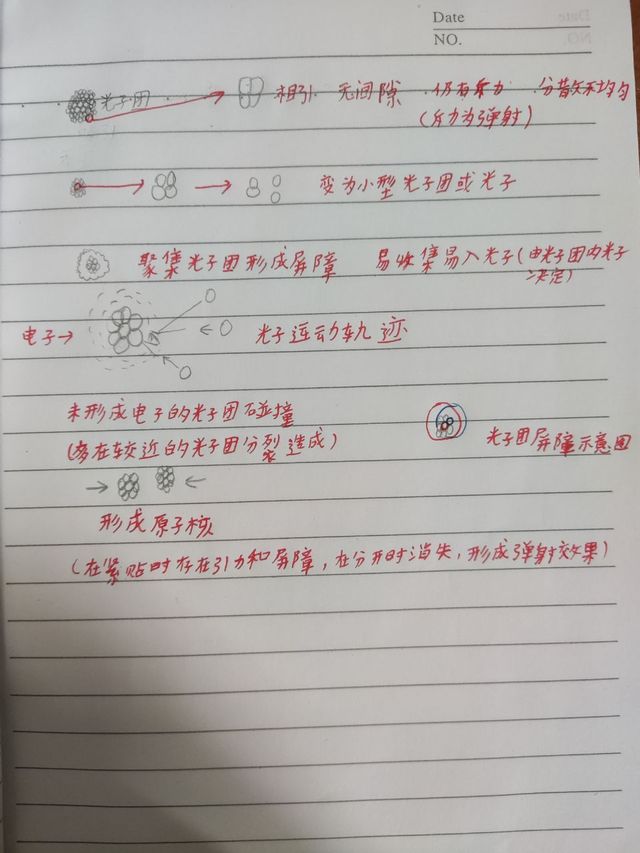 Date
NO.
光子团 相引 无间隙 仍有斥力 分散不均匀
(斥力为弹射)
变为小型光子团或光子
聚集光子团形成屏障 易收集易入光子(由光子团内光子
决定)
电子→ 光子运动轨迹
未形成电子的光子团碰撞
(多在较近的光子团分裂造成) 光子团屏障示意图
形成原子核
(在紧贴时存在引力和屏障,在分开时消失,形成弹射效果)